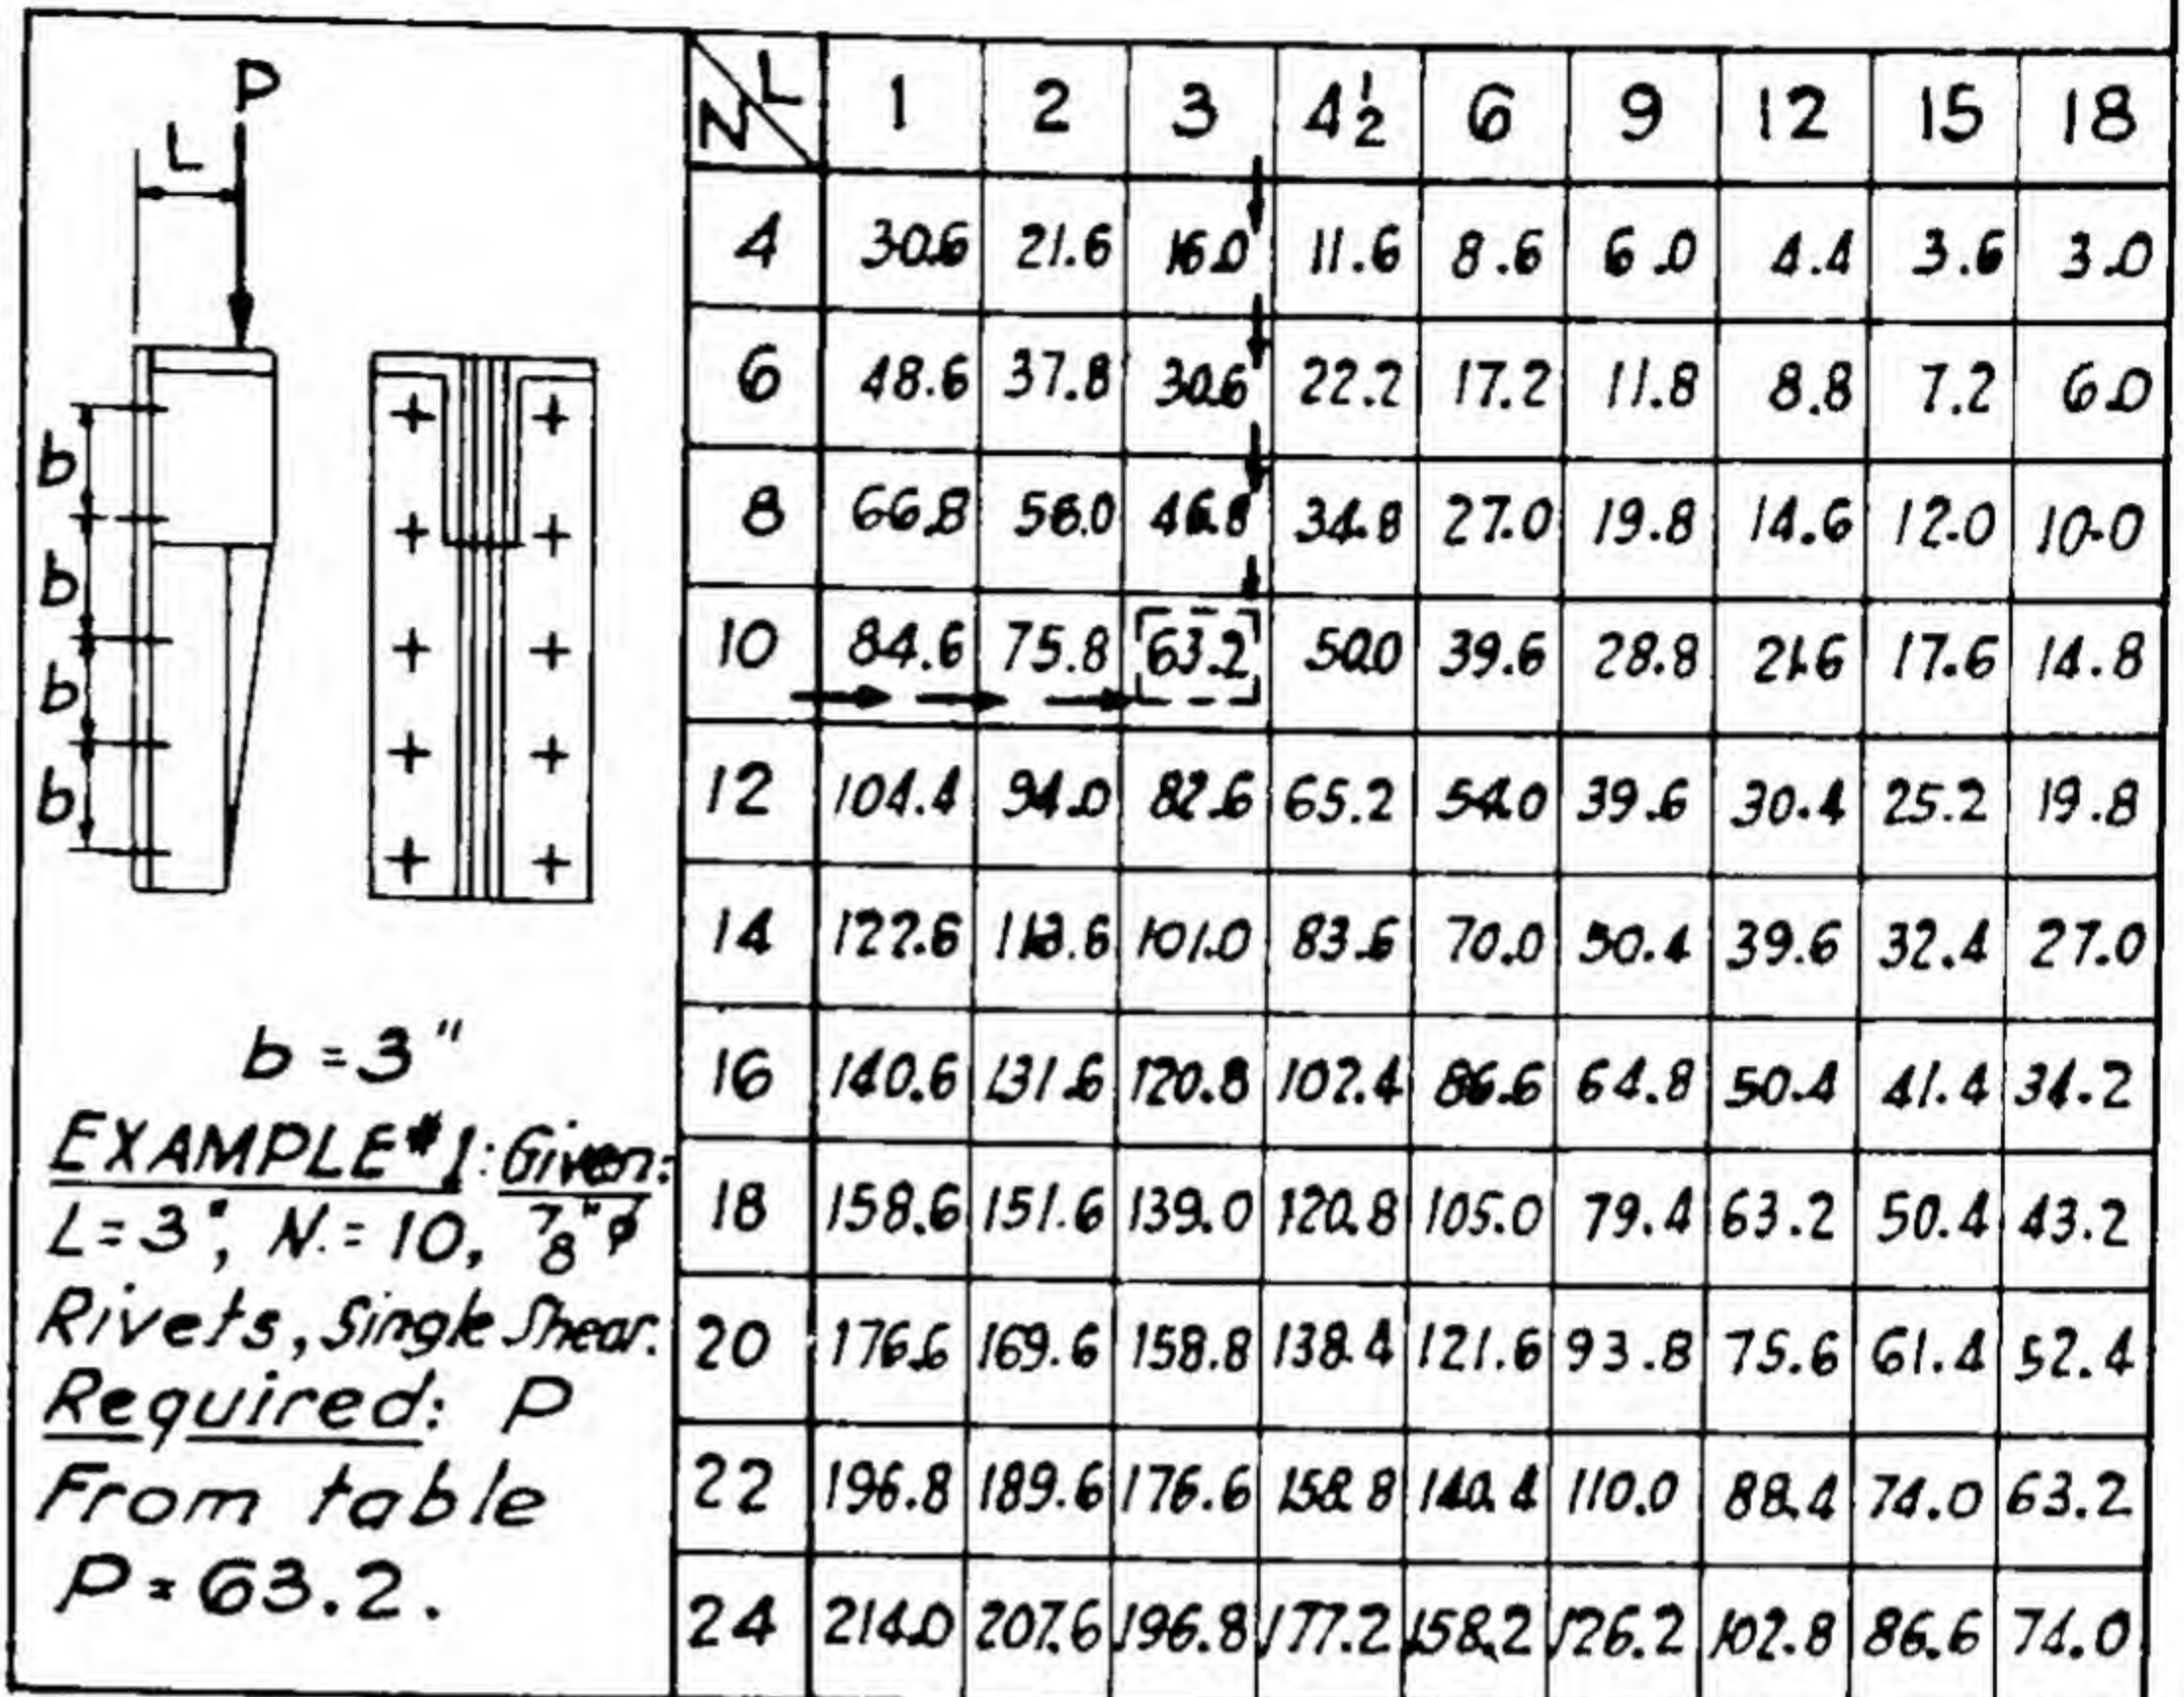 P
L
b
b
b
b
b = 3"
EXAMPLE #1: Given:
L = 3", N. = 10, 7/8"φ
Rivets, Single Shear.
Required: P
From table
P = 63.2.
N L 1 2 3 4½ 6 9 12 15 18
4 30.6 21.6 16.0 11.6 8.6 6.0 4.4 3.6 3.0
6 48.6 37.8 30.6 22.2 17.2 11.8 8.8 7.2 6.0
8 66.8 46.8 34.8 27.0 19.8 14.6 12.0 10.0
10 84.6 75.8 63.2 50.0 39.6 28.8 21.6 17.6 14.8
12 104.4 94.0 82.6 65.2 54.0 39.6 30.4 25.2 19.8
14 122.6 101.0 83.6 70.0 50.4 39.6 32.4 27.0
16 140.6 131.6 120.8 102.4 86.6 64.8 50.4 41.4 34.2
18 158.6 151.6 139.0 120.8 105.0 79.4 63.2 50.4 43.2
20 176.6 169.6 158.8 138.4 121.6 93.8 75.6 61.4 52.4
22 196.8 189.6 176.6 158.8 140.4 110.0 88.4 74.0 63.2
24 214.0 207.6 196.8 177.2 158.2 126.2 102.8 86.6 74.0